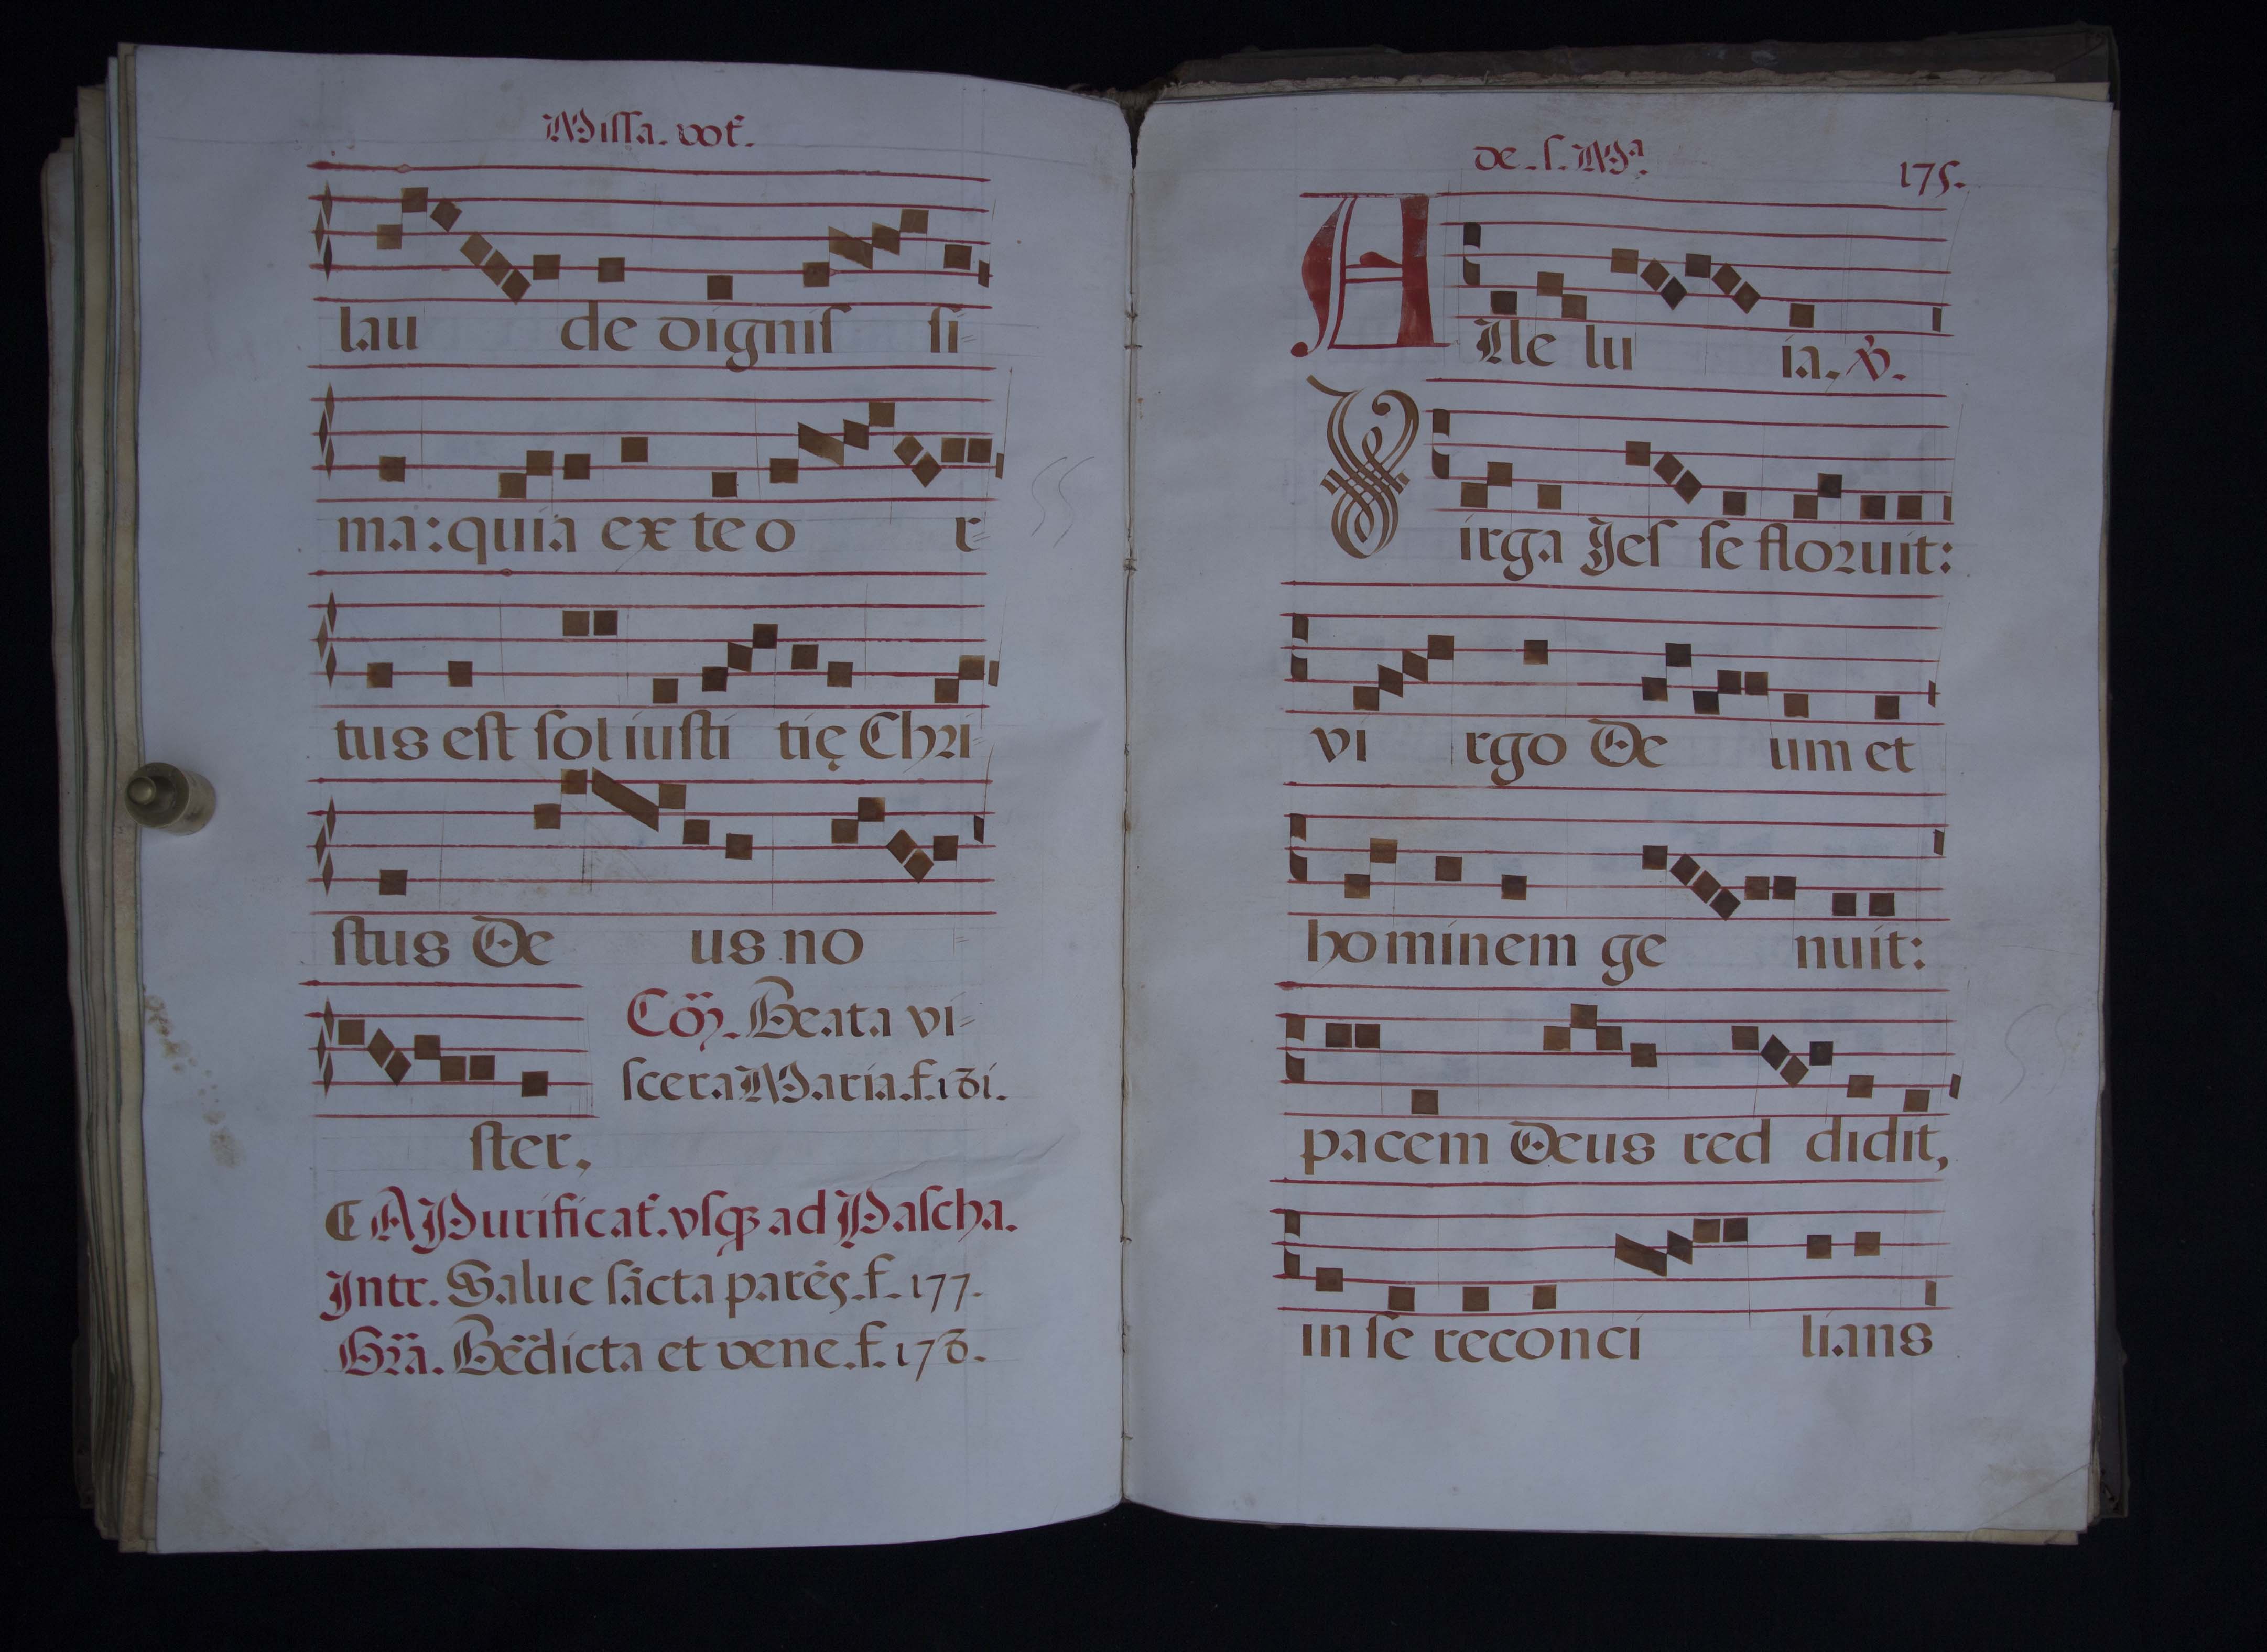 Missa. vot.
lau de dignis si=
ma: quia ex te o r=
tus est sol iusti tię Chri=
stus De us no =
ster,
Cõ. Beata vi=
scera Maria. f. 181.
A Purificat. vsq ad Pascha.
Intr. Salue sãcta parẽs. f. 177.
Grã. Bẽdicta et vene. f. 178.
de. s. Mª.
175.
Alle lu ia. ℣.
Virga Jes se floruit:
vi rgo De um et
hominem ge nuit:
pacem Deus red didit,
in se reconci lians